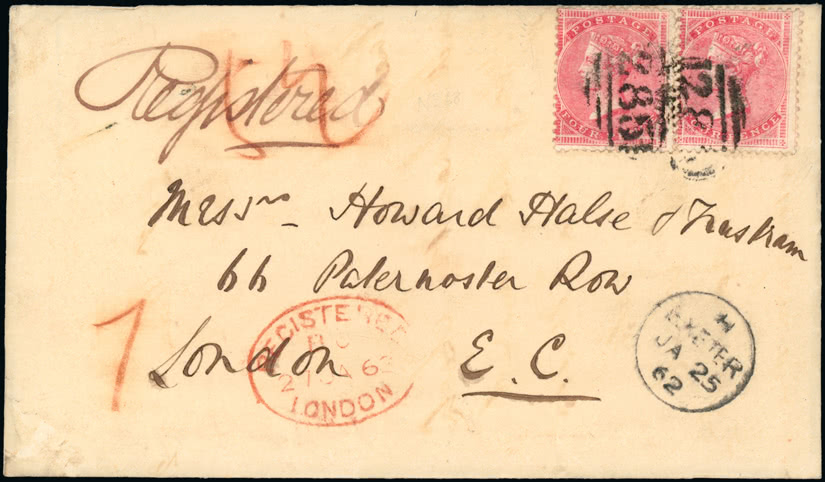 POSTAGE POSTAGE
FOUR PENCE
285 285
Registered
Messrs Howard Halse &
66 Paternoster Row
London E. C.
7
REGISTERED
27 JA 62
LONDON
H
EXETER
JA 25
62